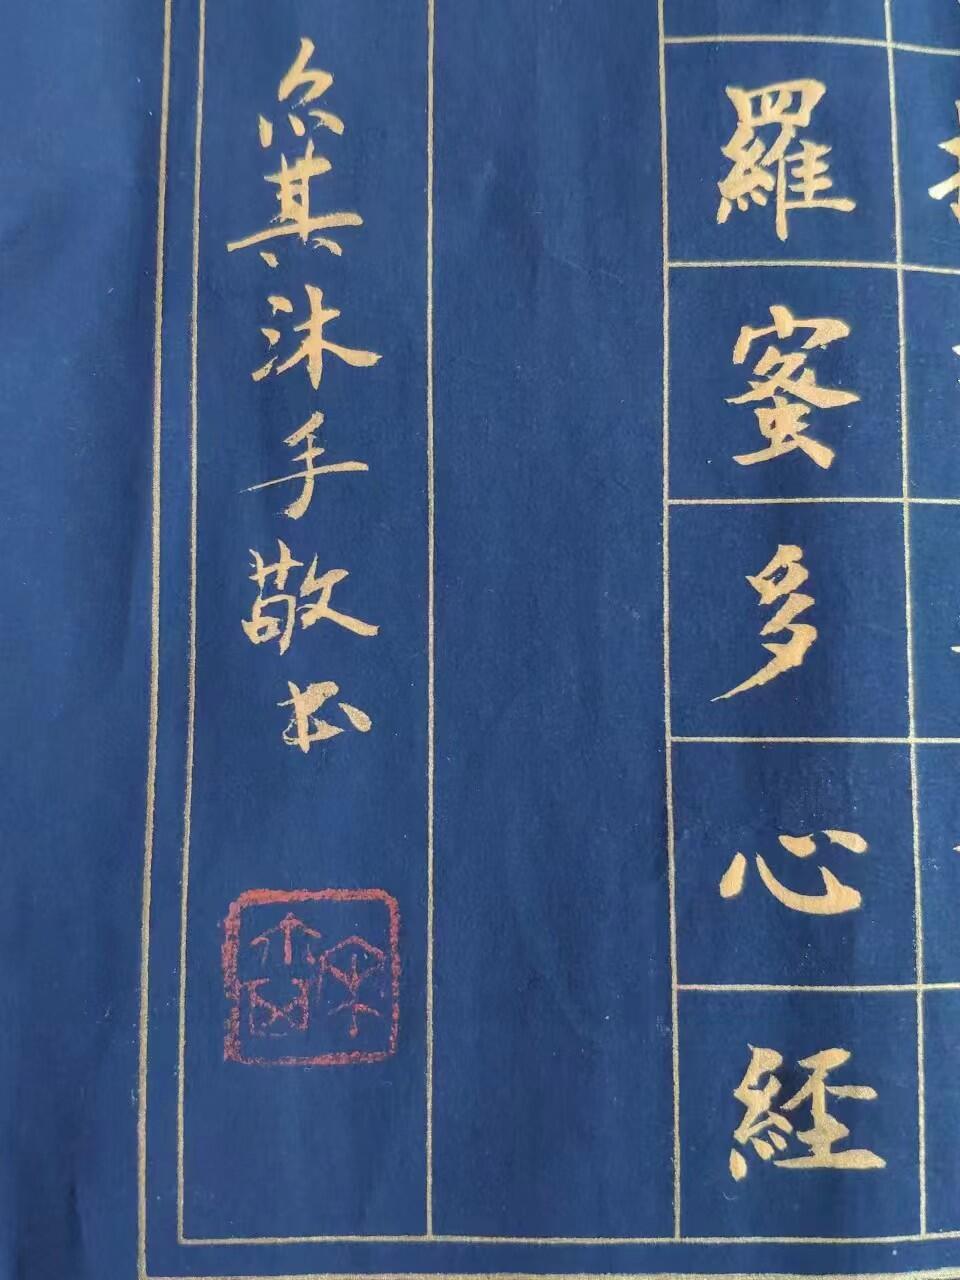 羅蜜多心經
尒其沐手敬书